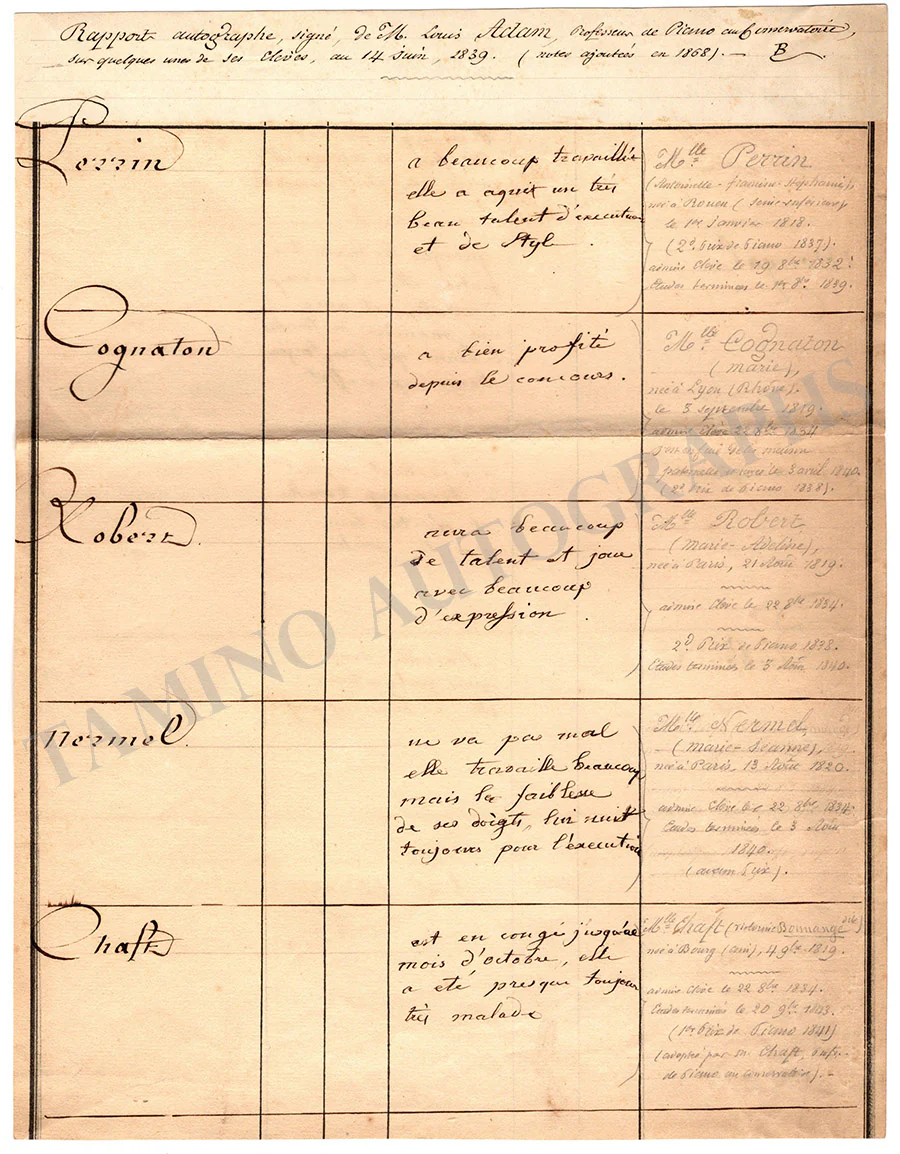 Rapport autographe, signé, de M. Louis Adam, Professeur de Piano au Conservatoire,
sur quelques unes de ses Elèves, au 14 juin, 1839. (notes ajoutées en 1868). — B
Perrin
a beaucoup travaillé
elle a aquit un très
beau talent d'execution
et de Style.
Mlle Perrin
(Antoinette-francine-Stéphanie),
née à Rouen (Seine-inférieure)
le 1er janvier 1818.
(2d. Prix de Piano 1837).
admise Elève le 19 8bre 1832.
Etudes terminées le 1er 8bre 1839.
Cognaton
a bien profité
depuis le concours.
Mlle Cognaton
(marie),
née à Lyon (Rhône).
le 3 septembre 1819.
admise Elève 22 8bre 1834
maison
paternelle le 3 avril 1840.
(2d Prix de Piano 1838).
Robert.
aura beaucoup
de talent et joue
avec beaucoup
d'expression.
Mlle Robert
(marie-Adeline),
née à Paris, 21 Août 1819.
admise Elève le 22 8bre 1834.
2d. Prix de Piano 1838.
Etudes terminées le 3 Août 1840.
Nermel.
ne va pa mal
elle travaille beaucoup
mais la faiblesse
de ses doigts, lui nuit
toujours pour l'execution
Mlle Nermel,
(marie-Jeanne),
née à Paris, 13 Août 1820.
admise Elève le 22 8bre 1834.
Etudes terminées le 3 Août
1840.
(aucun Prix).
Chaft
est en congé j'usqu'au
mois d'octobre, elle
a eté presque toujour
très malade
Mlle Chaft (victorine Bonnange dite)
née à Bourg (ain), 4 9bre 1819.
admise Elève le 22 8bre 1834.
Etudes terminées le 20 9bre 1843.
(1er Prix de Piano 1841)
(adoptée par m. Chaft, Prof.
de Piano au conservatoire). —
TAMINO AUTOGRAPHS